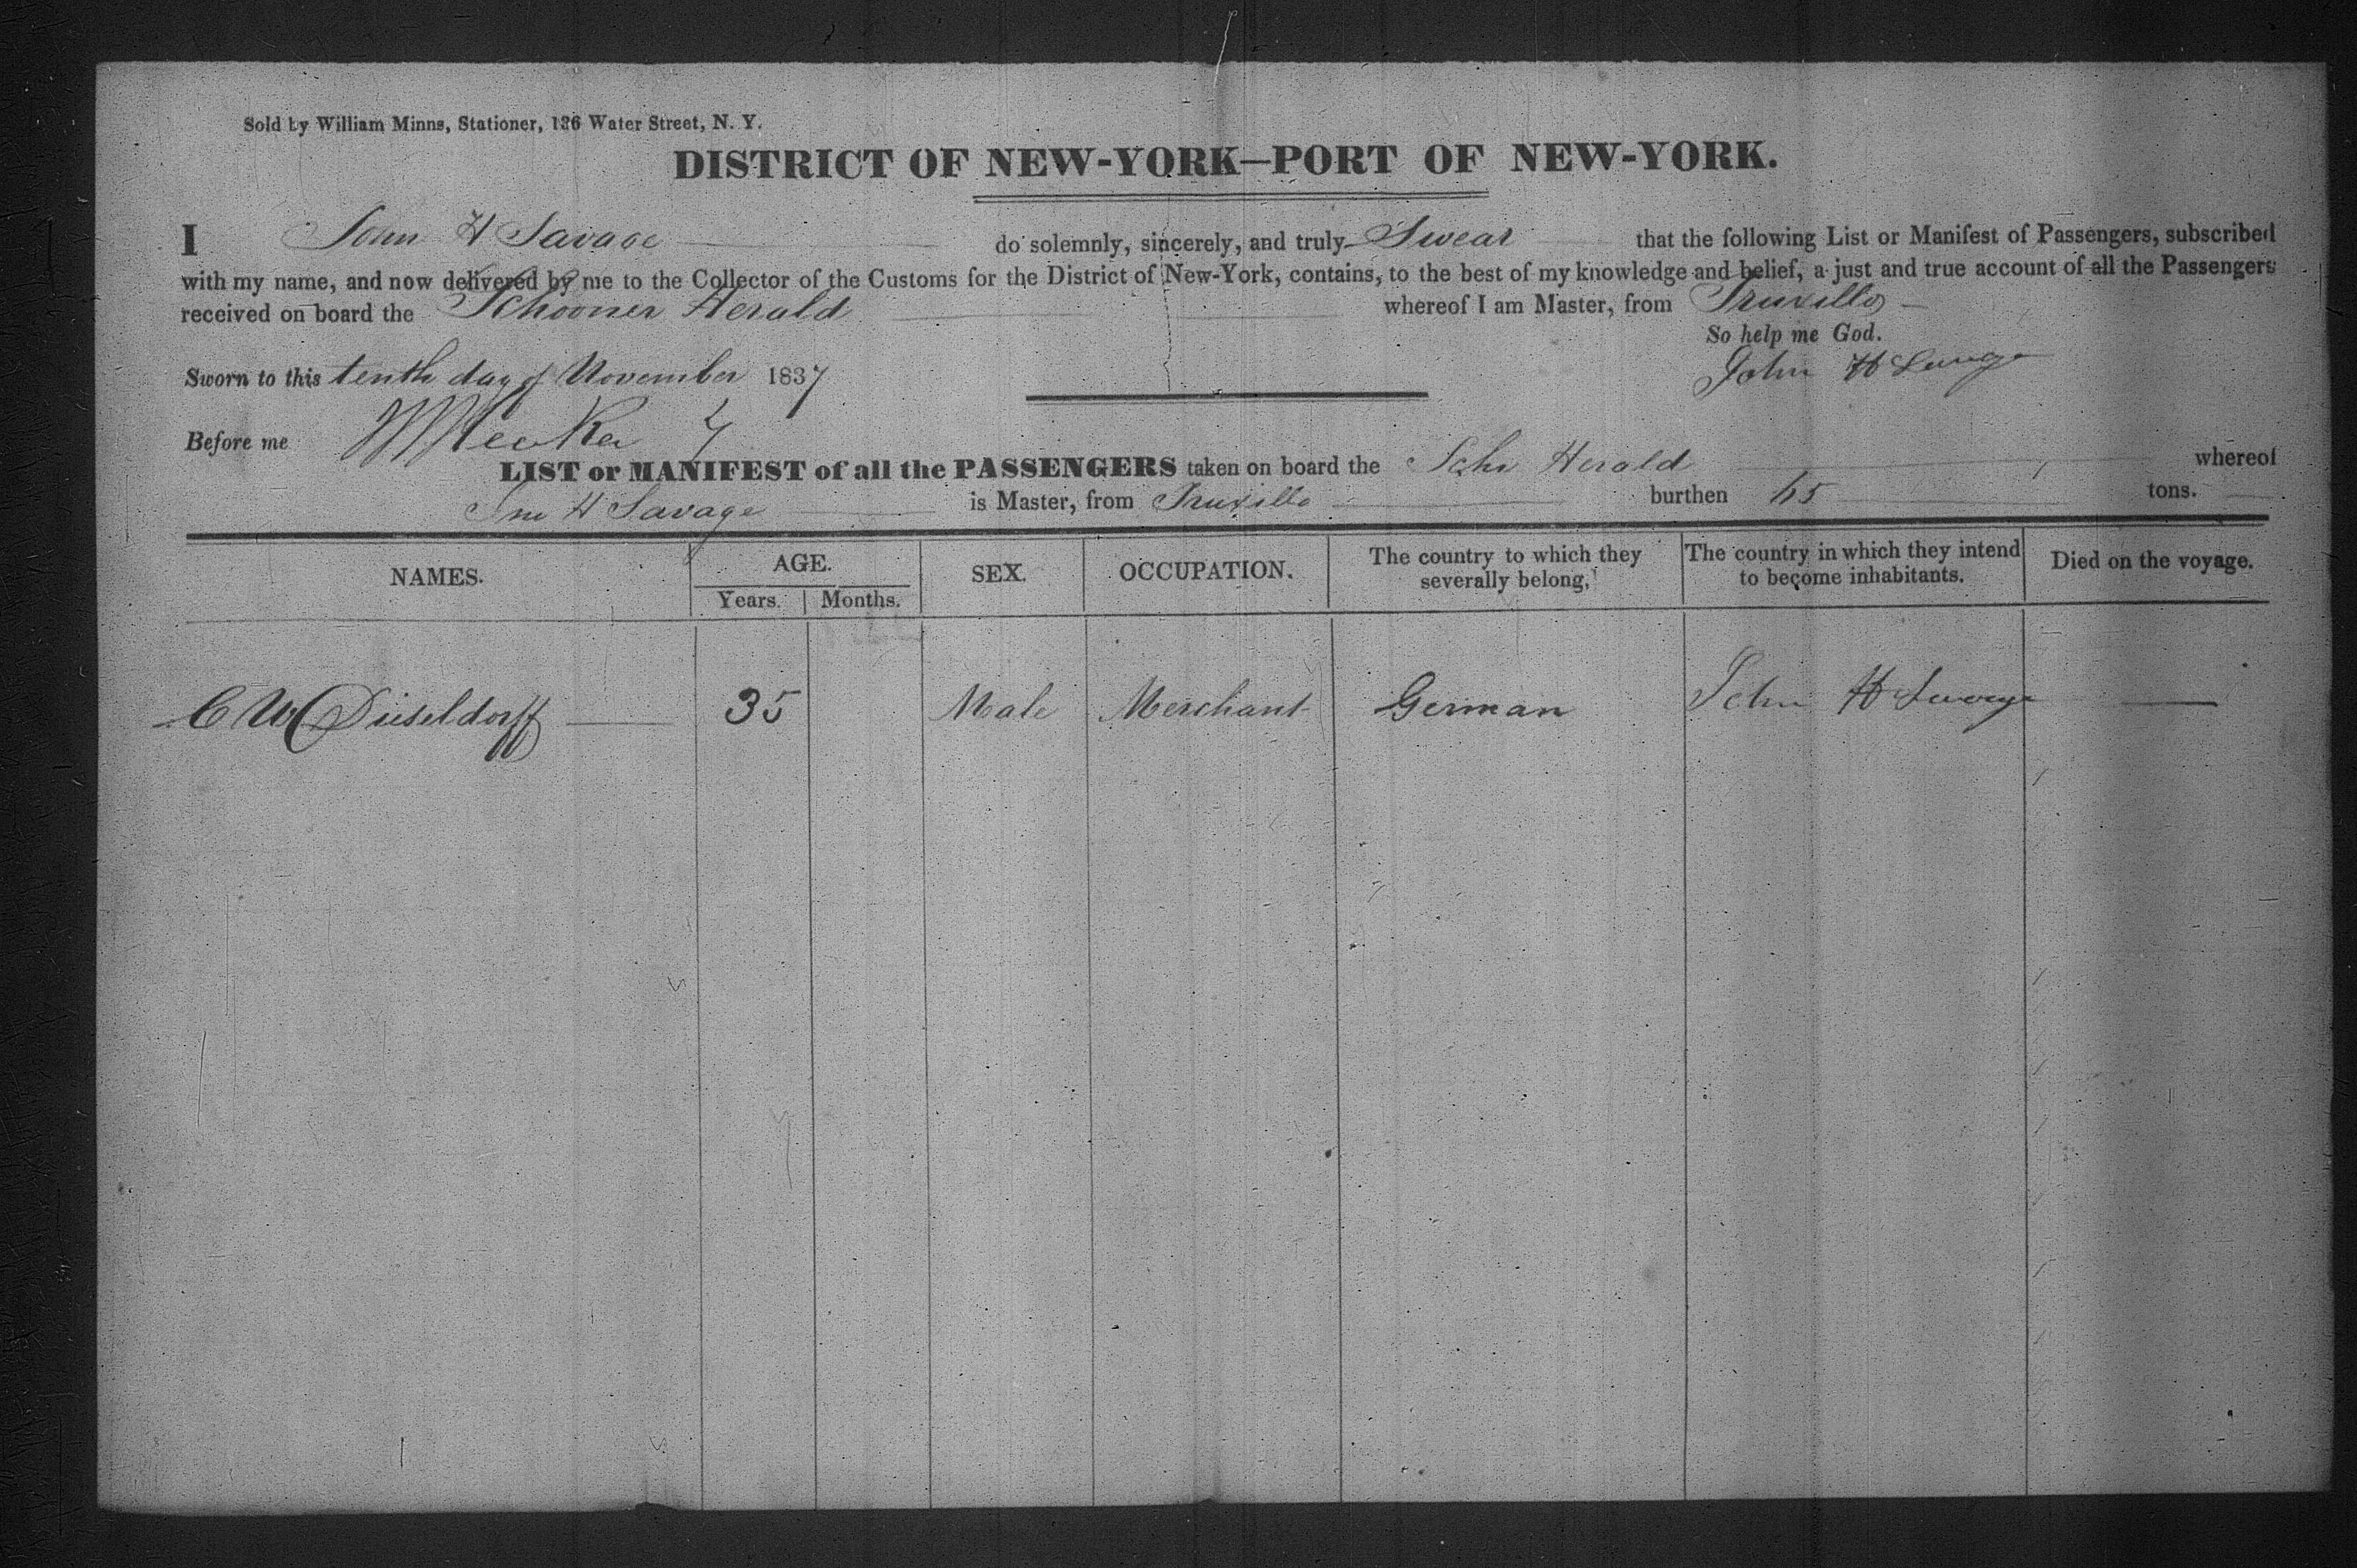 Sold by William Minns, Stationer, 136 Water Street, N. Y.
DISTRICT OF NEW-YORK—PORT OF NEW-YORK.
I John H Savage do solemnly, sincerely, and truly Swear that the following List or Manifest of Passengers, subscribed
with my name, and now delivered by me to the Collector of the Customs for the District of New-York, contains, to the best of my knowledge and belief, a just and true account of all the Passengers
received on board the Schooner Herald whereof I am Master, from Truxillo
So help me God.
Sworn to this tenth day of November 1837
John H Savage
Before me
LIST or MANIFEST of all the PASSENGERS taken on board the Schr Herald whereof
Jno H Savage is Master, from Truxillo burthen 65 tons.
NAMES. AGE. SEX. OCCUPATION. The country to which they severally belong. The country in which they intend to become inhabitants. Died on the voyage.
Years. Months.
C W Düseldorff 35 Male Merchant German John H Savage